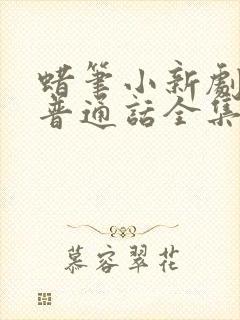 蜡筆小新劇
普通話全集
慕容翠花